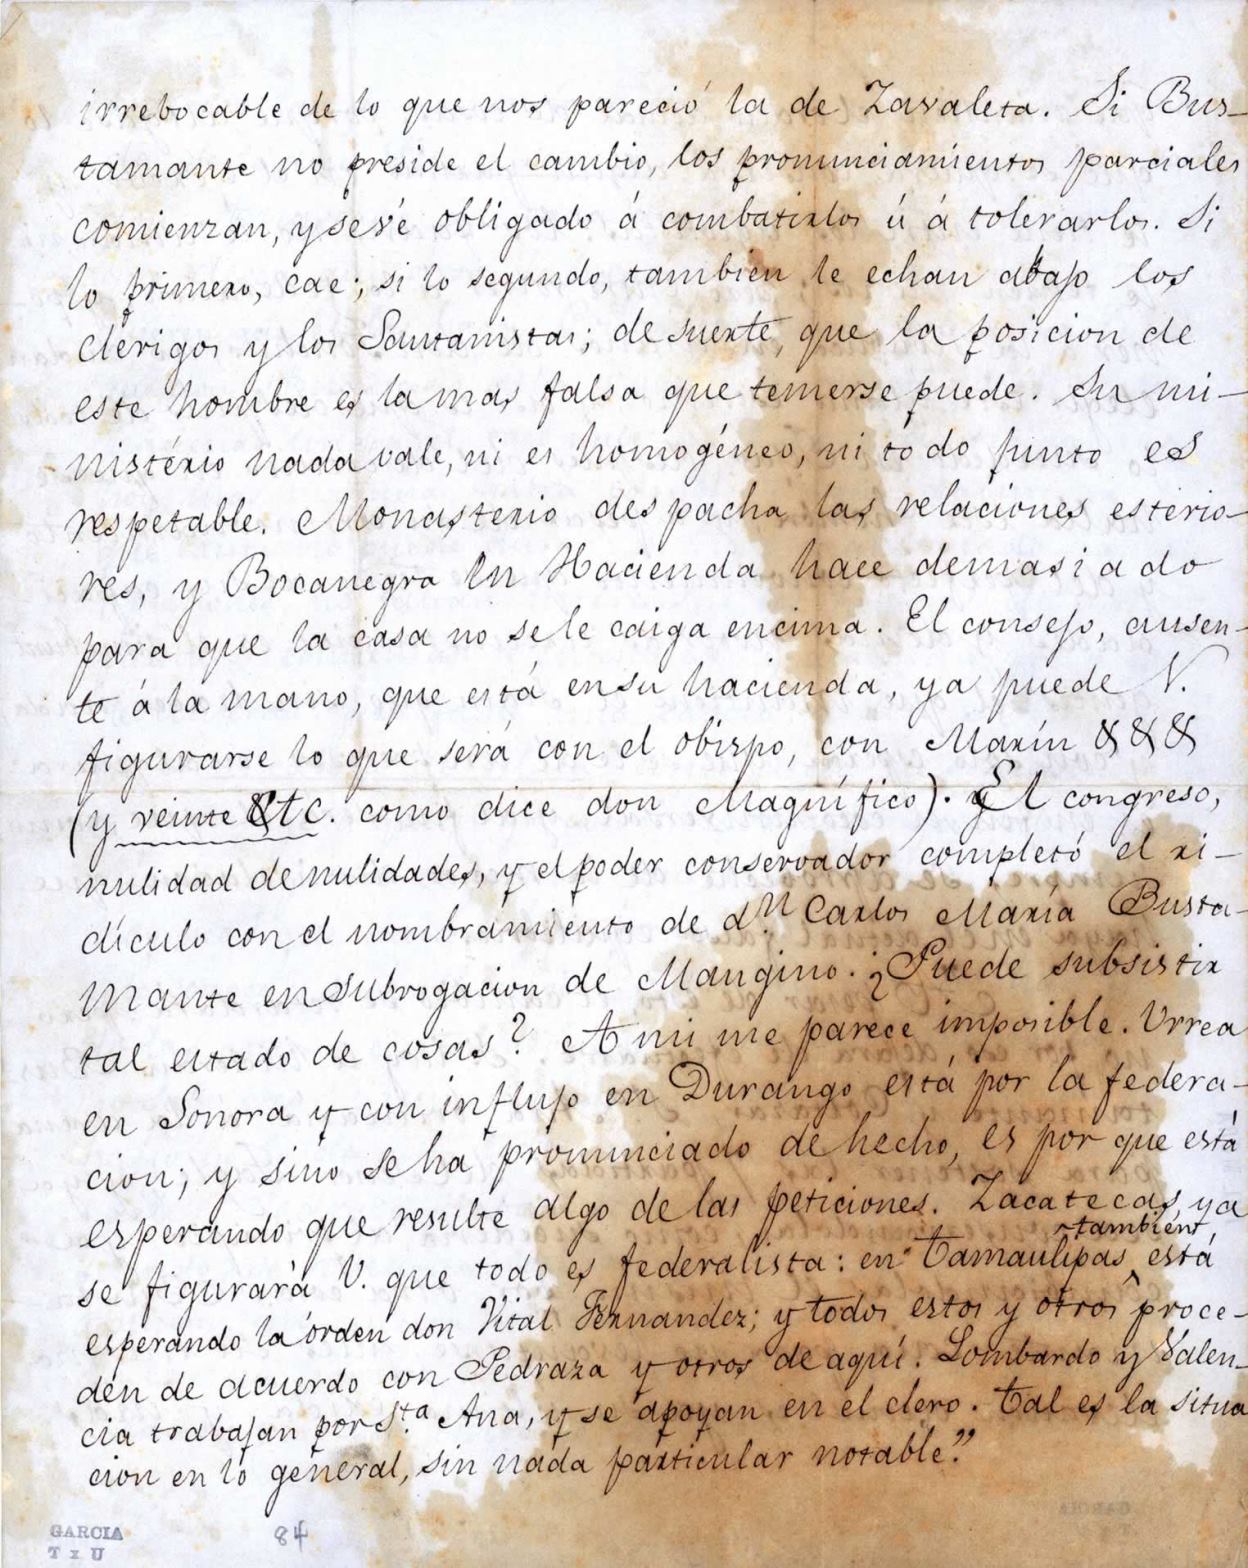 irrebocable de lo que nos pareció la de Zavaleta. Si Bus-
tamante no preside el cambio, los pronunciamientos parciales
comienzan, y se vé obligado á combatirlos ú á tolerarlos. Si
lo primero, cae; si lo segundo, tambien le echan abajo los
clerigos y los Santanistas; de suerte, que la posicion de
este hombre es la mas falsa que temerse puede. Su mi-
nistério nada vale, ni es homogéneo, ni todo junto es
respetable. Monasterio despacha las relaciones esterio-
res, y Bocanegra en Hacienda hace demasiado
para que la casa no se le caiga encima. El consejo, ausen-
te á la mano, que está en su hacienda, ya puede V.
figurarse lo que será con el obispo, con Marín &&&
(y veinte &tc. como dice don Magnífico). El congreso,
nulidad de nulidades, y el poder conservador completó el ri-
dículo con el nombramiento de dn Carlos María Busta-
mante en subrogacion de Mangino. ¿Puede subsistir
tal estado de cosas? A mi me parece imposible. Urrea
en Sonora y con influjo en Durango está por la federa-
cion; y sino se ha pronunciado de hecho, es por que está
esperando que resulte algo de las peticiones. Zacatecas, ya
se figurará V. que todo es federalista: en Tamaulipas tambien está
esperando la órden don Vital Fernandez; y todos estos y otros proce-
den de acuerdo con Pedraza y otros de aquí. Lombardo y Valen-
cia trabajan por Sta Ana, y se apoyan en el clero. Tal es la situa
cion en lo general, sin nada particular notable."
GARCIA
T x U
84